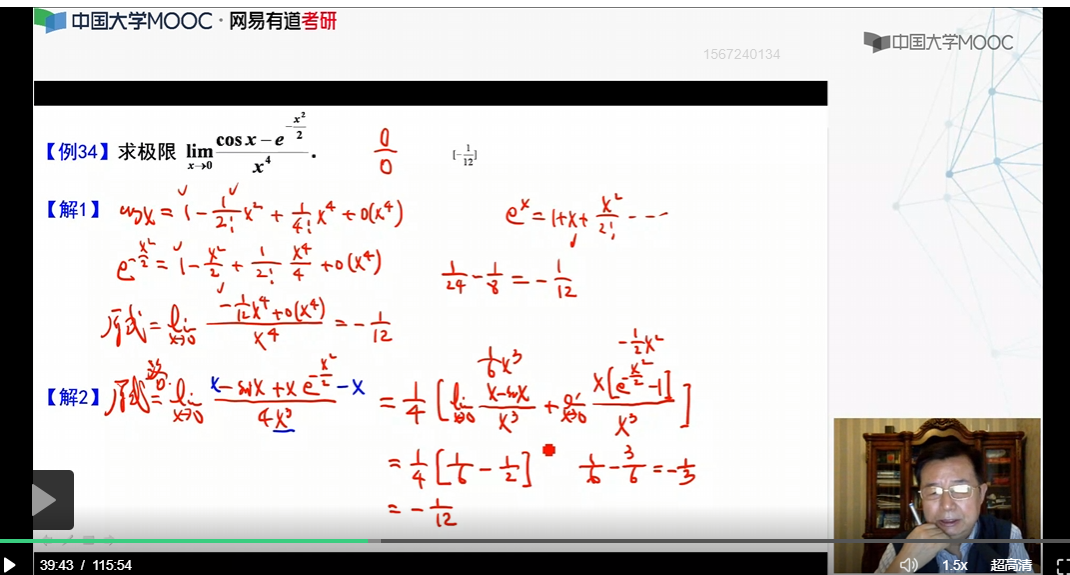 中国大学MOOC · 网易有道考研
中国大学MOOC
1567240134
【例34】求极限 lim x→0 (cos x − e^(−x²/2)) / x⁴ . 0/0 [−1/12]
【解1】 cosx = 1 − 1/2! x² + 1/4! x⁴ + o(x⁴) e^x = 1+x+ x²/2! ----
e^(−x²/2) = 1 − x²/2 + 1/2! x⁴/4 + o(x⁴) 1/24 − 1/8 = − 1/12
原式 = lim x→0 (−1/12 x⁴ + o(x⁴)) / x⁴ = − 1/12
1/6 x³ −1/2 x²
【解2】 原式 = lim x→0 (x − sinx + x e^(−x²/2) − x) / 4x³ = 1/4 [ lim x→0 (x−sinx)/x³ + lim x→0 x[e^(−x²/2) −1] / x³ ]
= 1/4 [ 1/6 − 1/2 ] 1/6 − 3/6 = − 1/3
= − 1/12
39:43 / 115:54 1.5x 超高清